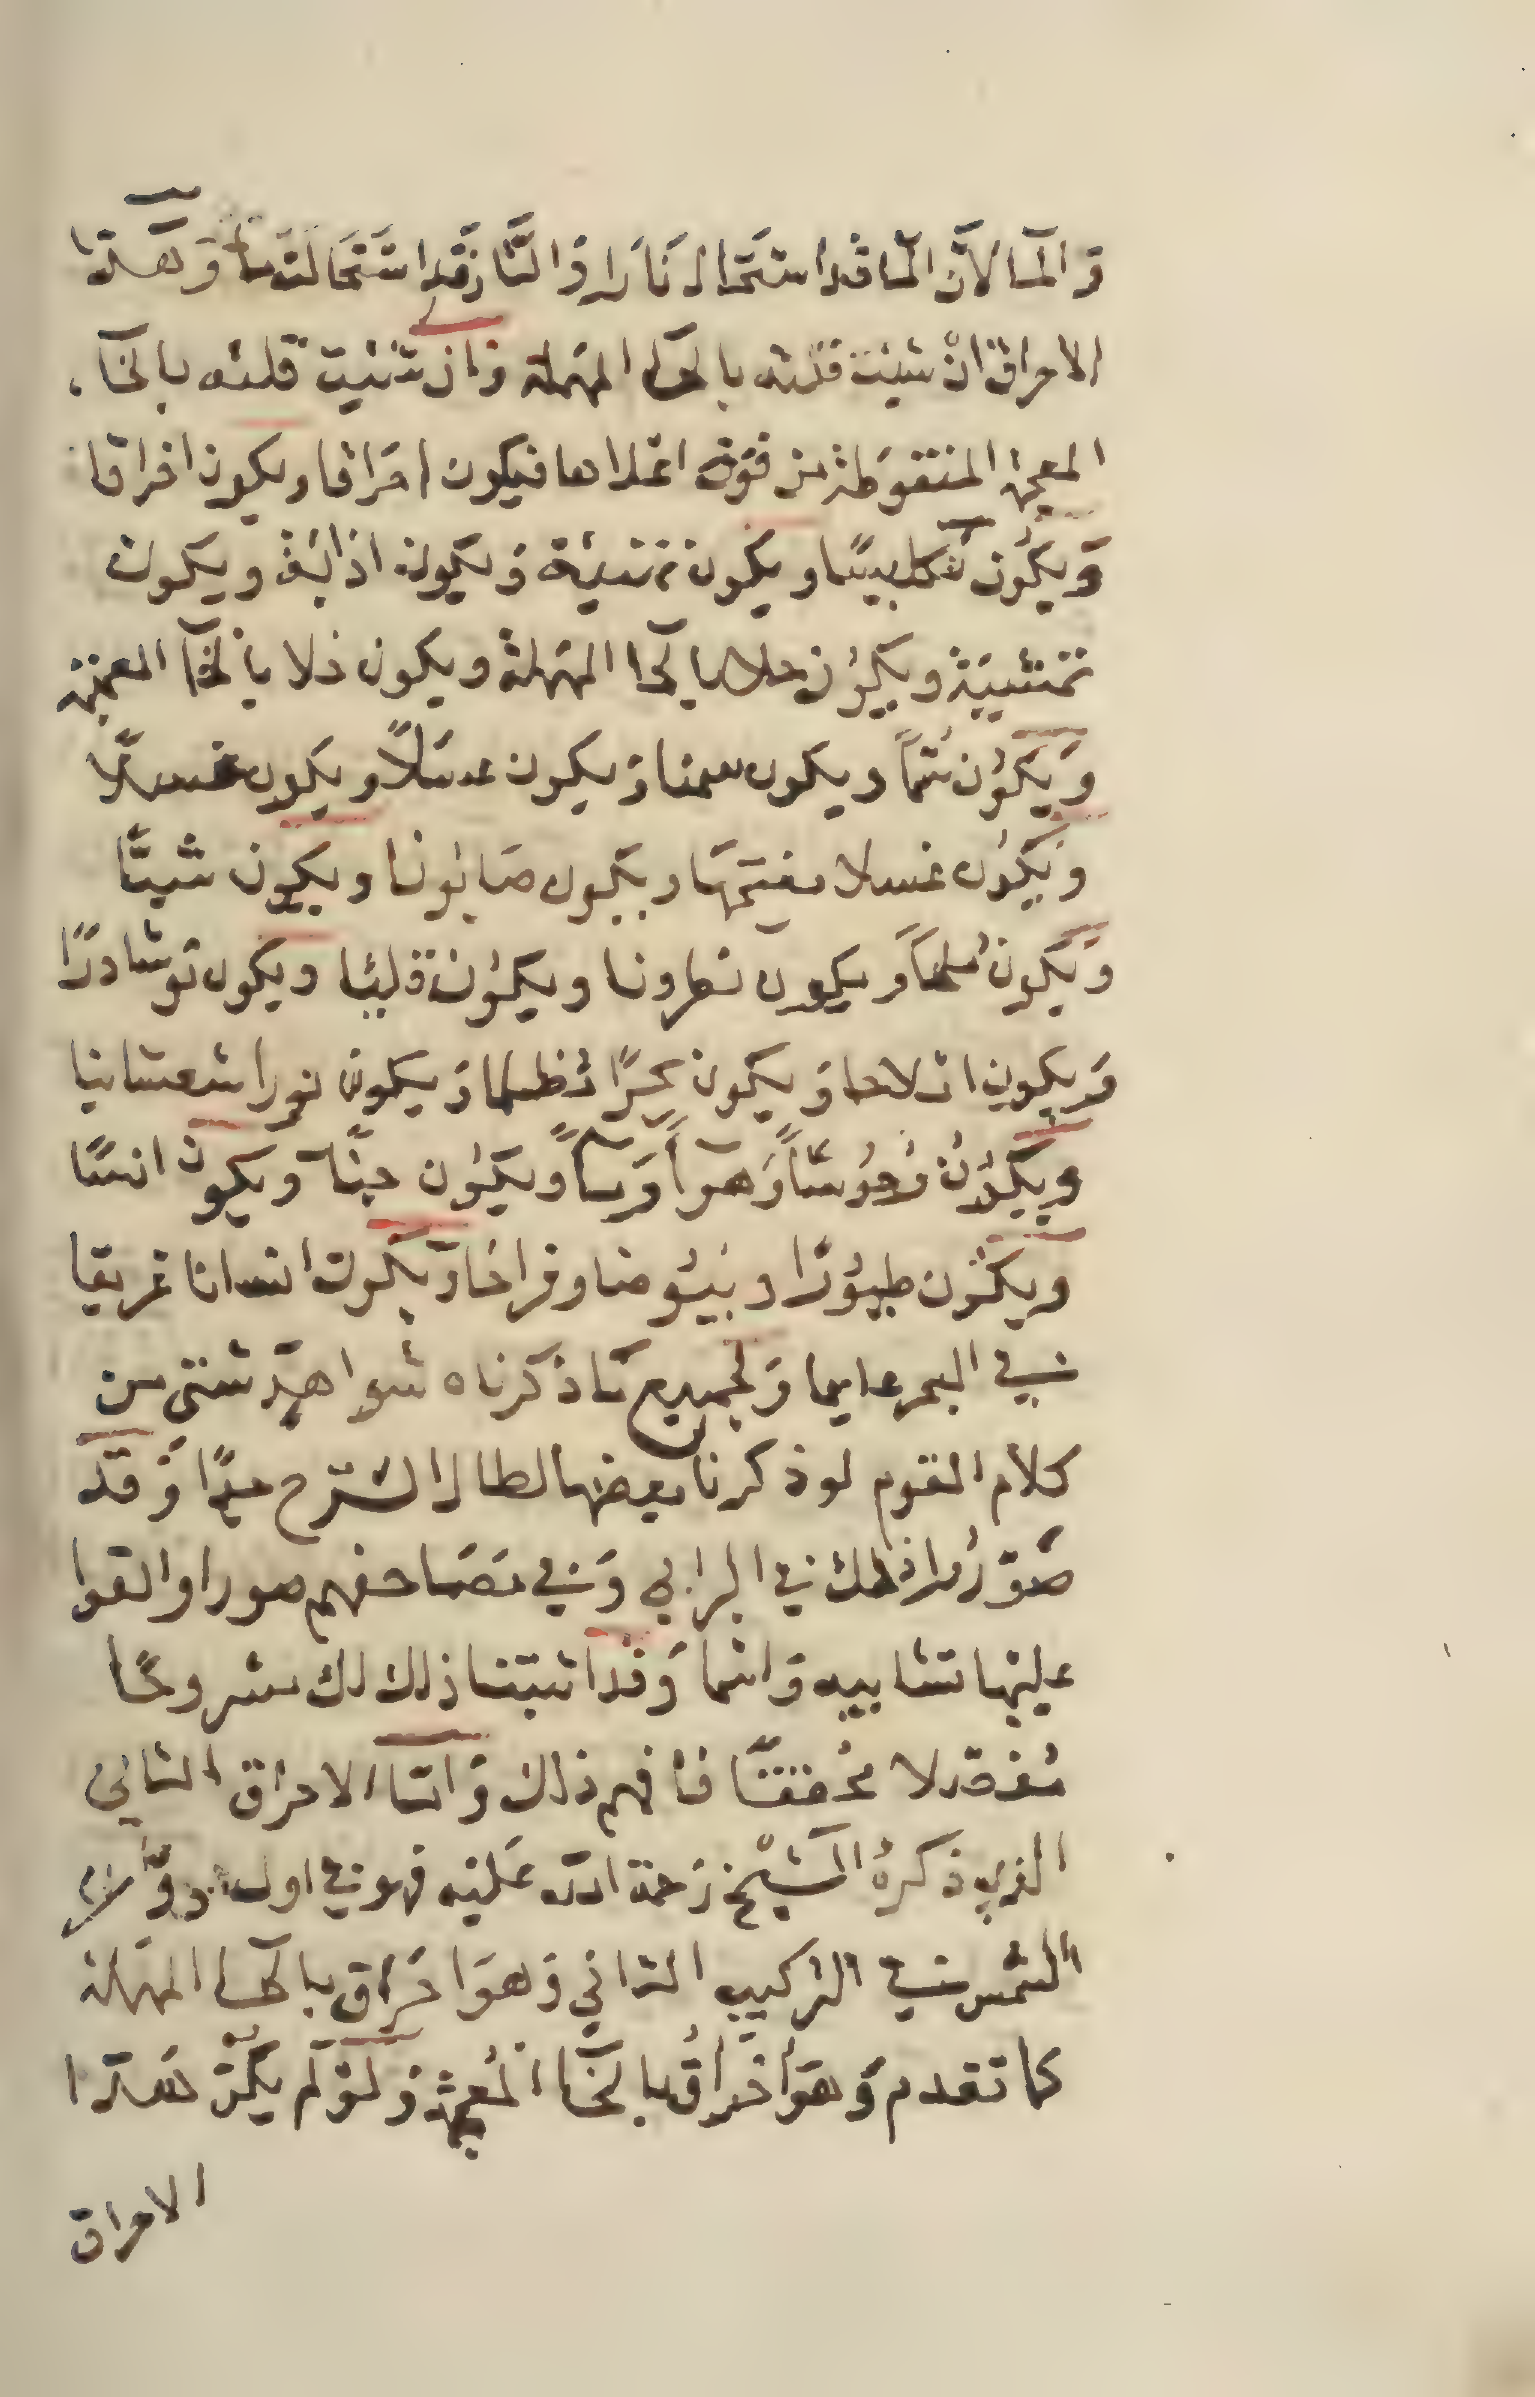 والما لان الما قد استحال نارا والنار قد استحالت ما وهذا
الاحراق ان شيت قلته بالحا المهملة وان شيت قلته بالخاء
المعجمة المنقوطة من فوق اعلاها فيكون احراقا ويكون اخراقا
ويكون تكليسا ويكون تنقية ويكون اذابة ويكون
تمشية ويكون حلا بالحا المهملة ويكون خلا بالخا المعجمة
ويكون سما ويكون سمنا ويكون عسلا ويكون غسلا
ويكون غسلا بفتحها ويكون صابونا ويكون شبا
ويكون ملحا ويكون نطرونا ويكون قليا ويكون نوشادرا
ويكون املاحا ويكون بحرا مظلما ويكون نورا شعشانيا
ويكون وحوشا وهوآ وما ويكون جنا ويكون انسا
ويكون طيورا وبيوضا وفراخا ويكون انسانا غريقا
في البحر عايما ولجميع ما ذكرناه شواهد شتى من
كلام القوم لو ذكرنا بعضها لطال الشرح جدا وقد
صوروا ذلك في البرابي وفي مصاحفهم صورا والقوا
عليها تشابيه واسما وقد اثبتنا ذلك لك مشروحا
مفصلا محققا فافهم ذلك واما الاحراق الثاني
الذي ذكره الشيخ رحمة الله عليه فهو في اول
الشمس في التركيب الثاني وهو احراق بالحا المهملة
كما تقدم وهو اخراق بالخا المعجمة ولو لم يكن هذا
الاحراق